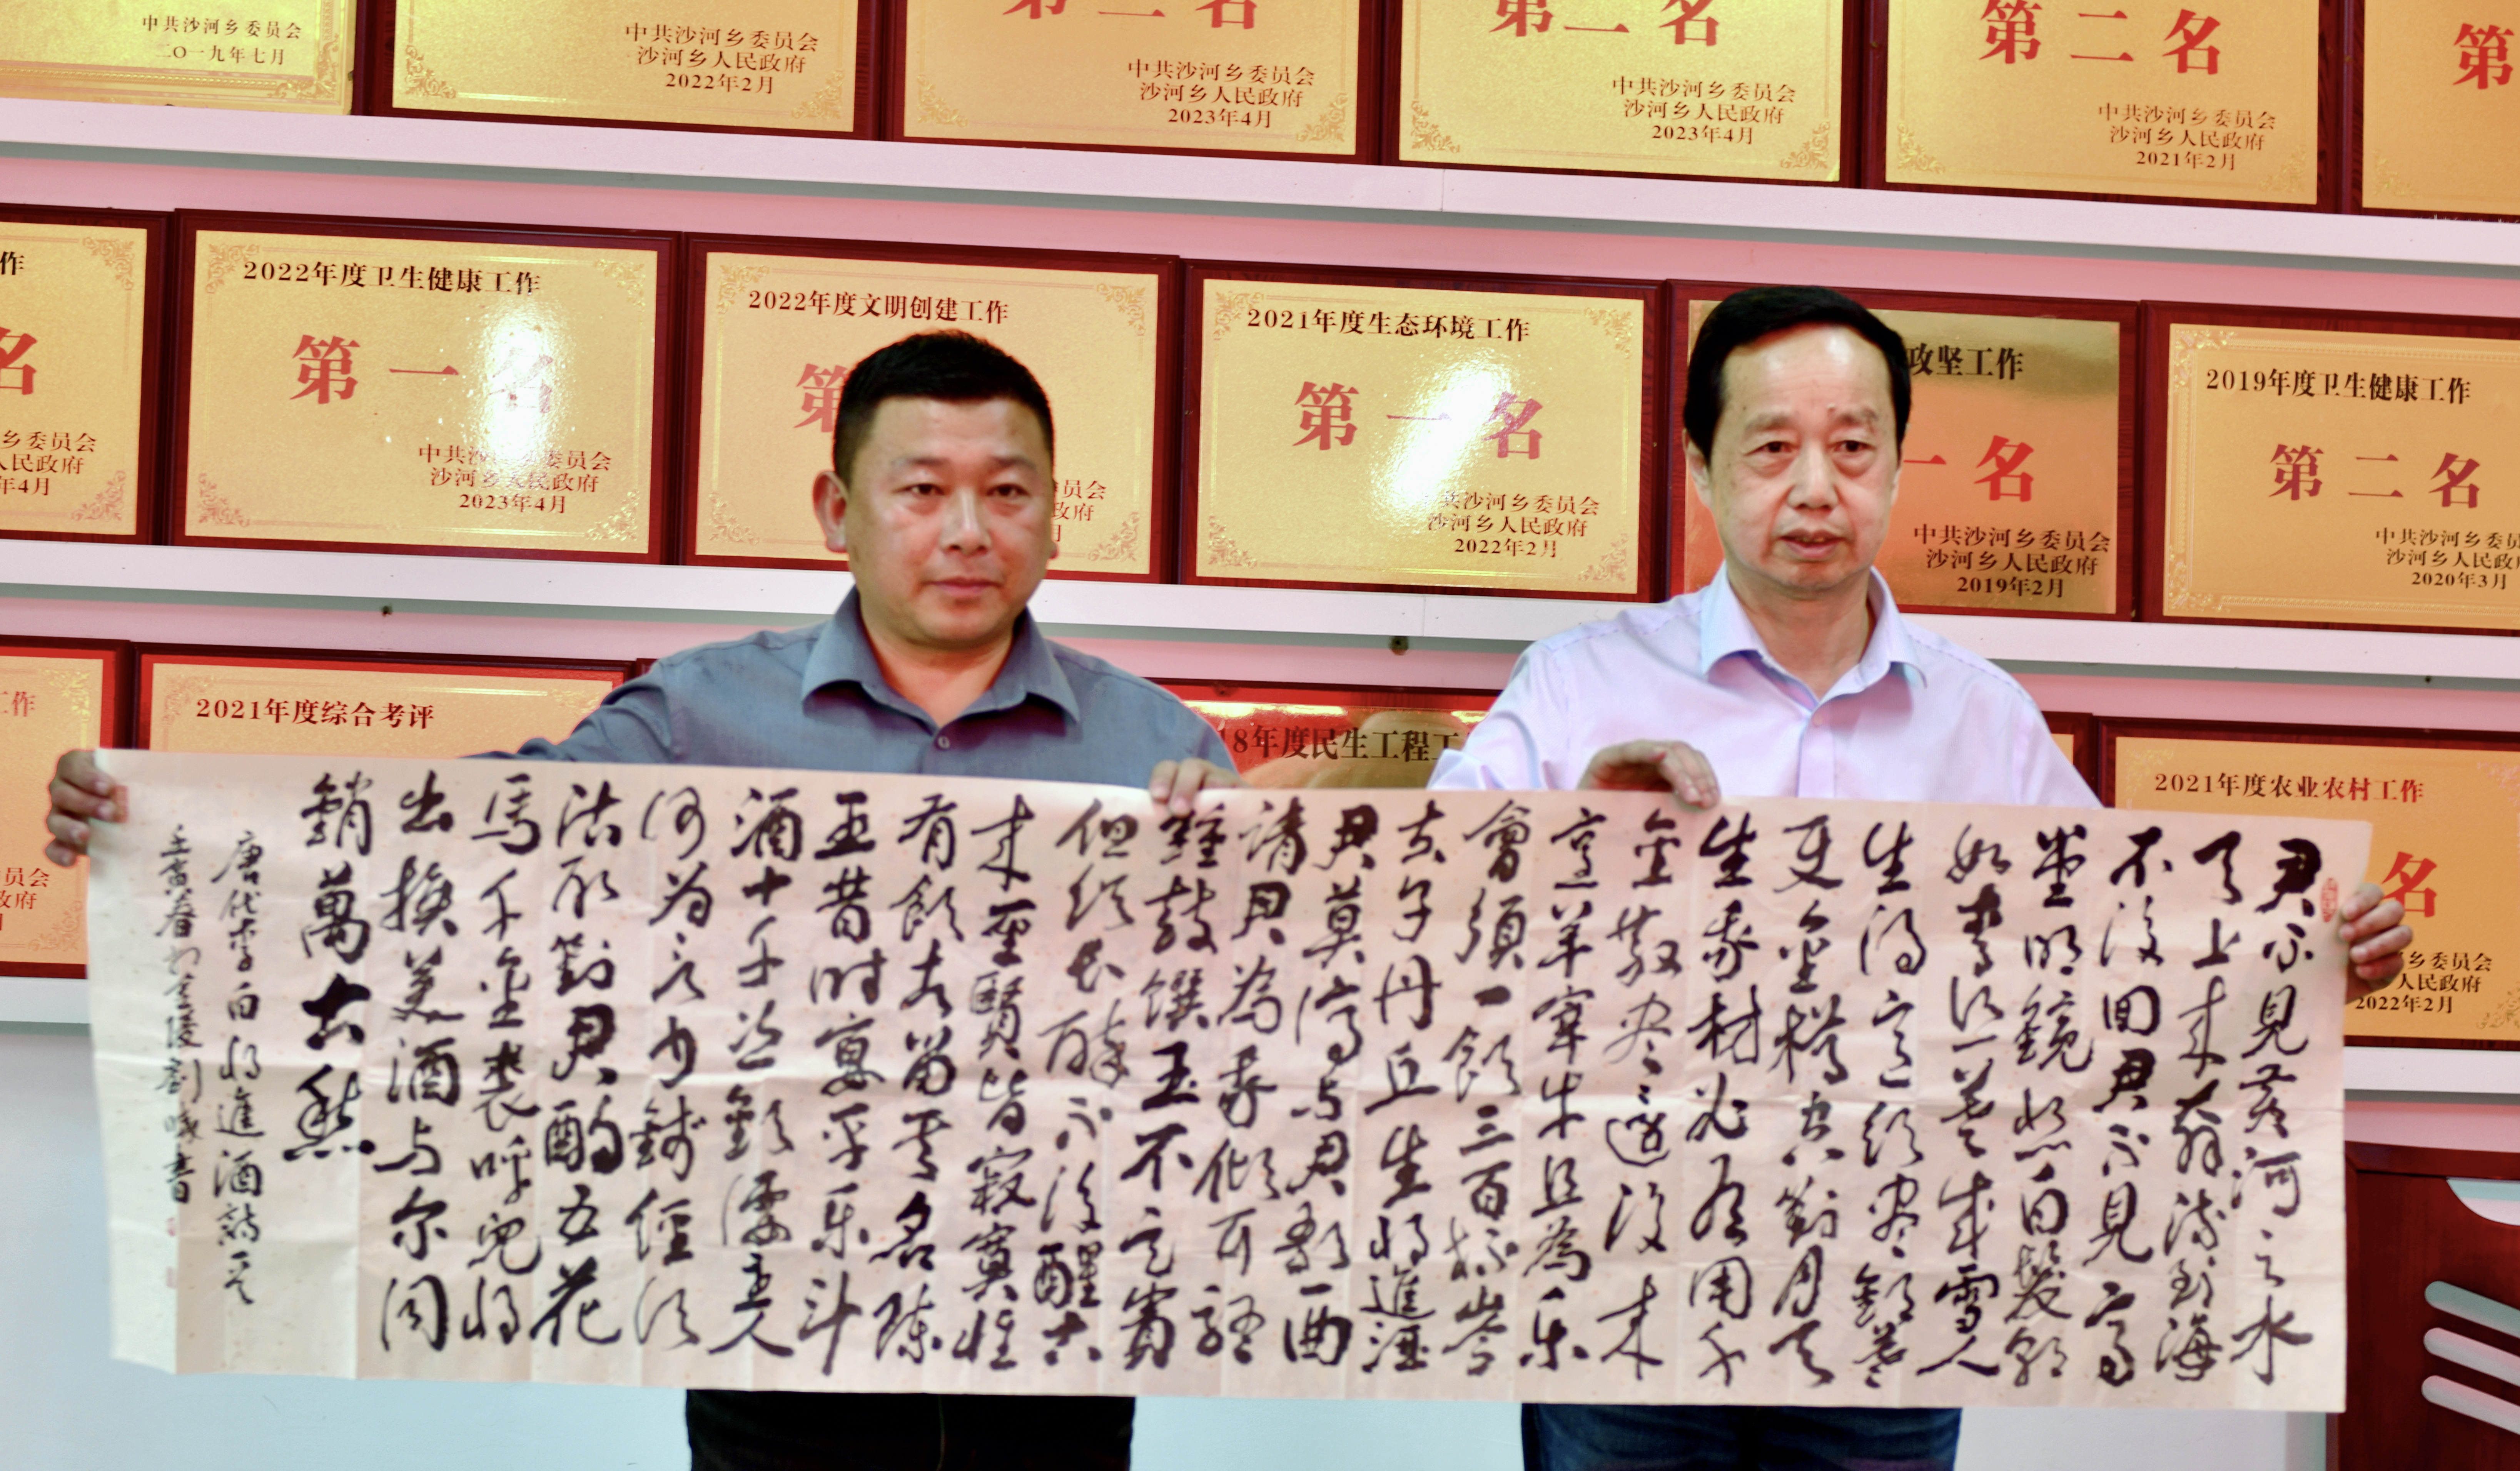 中共沙河乡委员会
二〇一九年七月
中共沙河乡委员会
沙河乡人民政府
2022年2月
第二名
中共沙河乡委员会
沙河乡人民政府
2023年4月
第一名
中共沙河乡委员会
沙河乡人民政府
2023年4月
第二名
中共沙河乡委员会
沙河乡人民政府
2021年2月
第
作
名
乡委员会
人民政府
年4月
2022年度卫生健康工作
第一名
中共沙河乡委员会
沙河乡人民政府
2023年4月
2022年度文明创建工作
第
员会
政府
月
2021年度生态环境工作
第一名
中共沙河乡委员会
沙河乡人民政府
2022年2月
攻坚工作
一名
中共沙河乡委员会
沙河乡人民政府
2019年2月
2019年度卫生健康工作
第二名
中共沙河乡委员会
沙河乡人民政府
2020年3月
工作
员会
政府
月
2021年度综合考评
18年度民生工程工
2021年度农业农村工作
名
乡委员会
人民政府
2022年2月
君不見黄河之水
天上来奔流到海
不復回君不見高
堂明鏡悲白髮朝
如青絲暮成雪人
生得意須盡歡莫
使金樽空對月天
生我材必有用千
金散盡還復来
烹羊宰牛且為乐
會須一飲三百杯岑
夫子丹丘生將進酒
君莫停与君歌一曲
請君為我傾耳聽
鐘鼓饌玉不足貴
但須長醉不復醒古
来聖賢皆寂寞惟
有飲者留其名陳
王昔時宴平乐斗
酒十千恣歡謔主人
何為言少錢徑須
沽取對君酌五花
馬千金裘呼兒將
出換美酒与尔同
銷萬古愁
唐代李白將進酒詩一首
壬寅春於金陵劉書